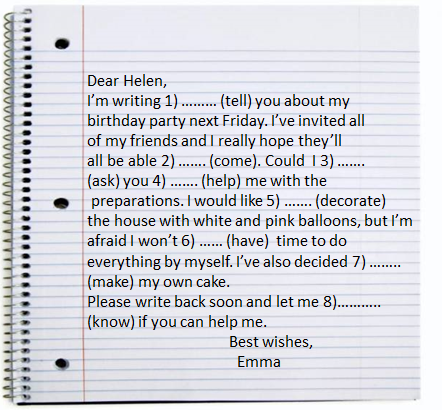 Dear Helen,
I'm writing 1) ......... (tell) you about my
birthday party next Friday. I've invited all
of my friends and I really hope they'll
all be able 2) ....... (come). Could I 3) .......
(ask) you 4) ....... (help) me with the
preparations. I would like 5) ....... (decorate)
the house with white and pink balloons, but I'm
afraid I won't 6) ...... (have) time to do
everything by myself. I've also decided 7) ........
(make) my own cake.
Please write back soon and let me 8)...........
(know) if you can help me.
Best wishes,
Emma